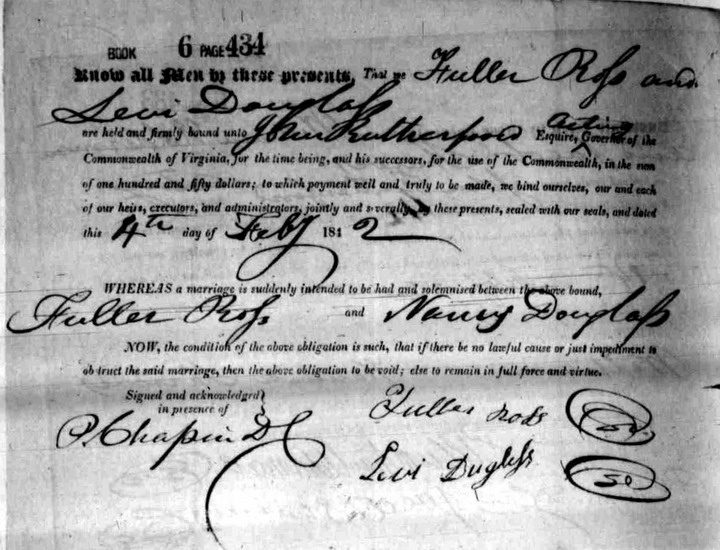 BOOK 6 PAGE 434
Know all Men by these presents, That we Fuller Ross and
Levi Douglass
are held and firmly bound unto John Rutherford Esquire, Acting Governor of the
Commonwealth of Virginia, for the time being, and his successors, for the use of the Commonwealth, in the sum
of one hundred and fifty dollars; to which payment well and truly to be made, we bind ourselves, our and each
of our heirs, executors, and administrators, jointly and severally, by these presents, sealed with our seals, and dated
this 4th day of Feby 1842
WHEREAS a marriage is suddenly intended to be had and solemnised between the above bound,
Fuller Ross and Nancy Douglass
NOW, the condition of the above obligation is such, that if there be no lawful cause or just impediment to
ob truct the said marriage, then the above obligation to be void; else to remain in full force and virtue.
Signed and acknowledged
in presence of
Fuller Ross
P. Chapin DC
Levi Duglass